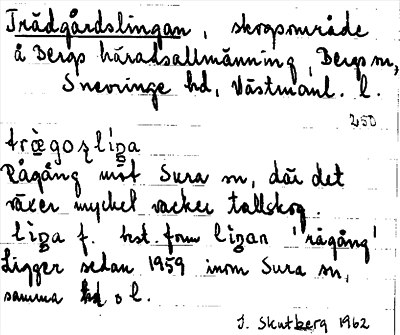 Trädgårdslingan, skogsområde
å Bergs häradsallmänning, Bergs sn,
Snevringe hd, Västmanl. l.
250
trä̀goʂliŋa
Rågång mot Sura sn, där det
växer mycket vacker tallskog.
liŋa f. best. form liŋan 'rågång'
Ligger sedan 1959 inom Sura sn,
samma hd o l.
J. Skutberg 1962